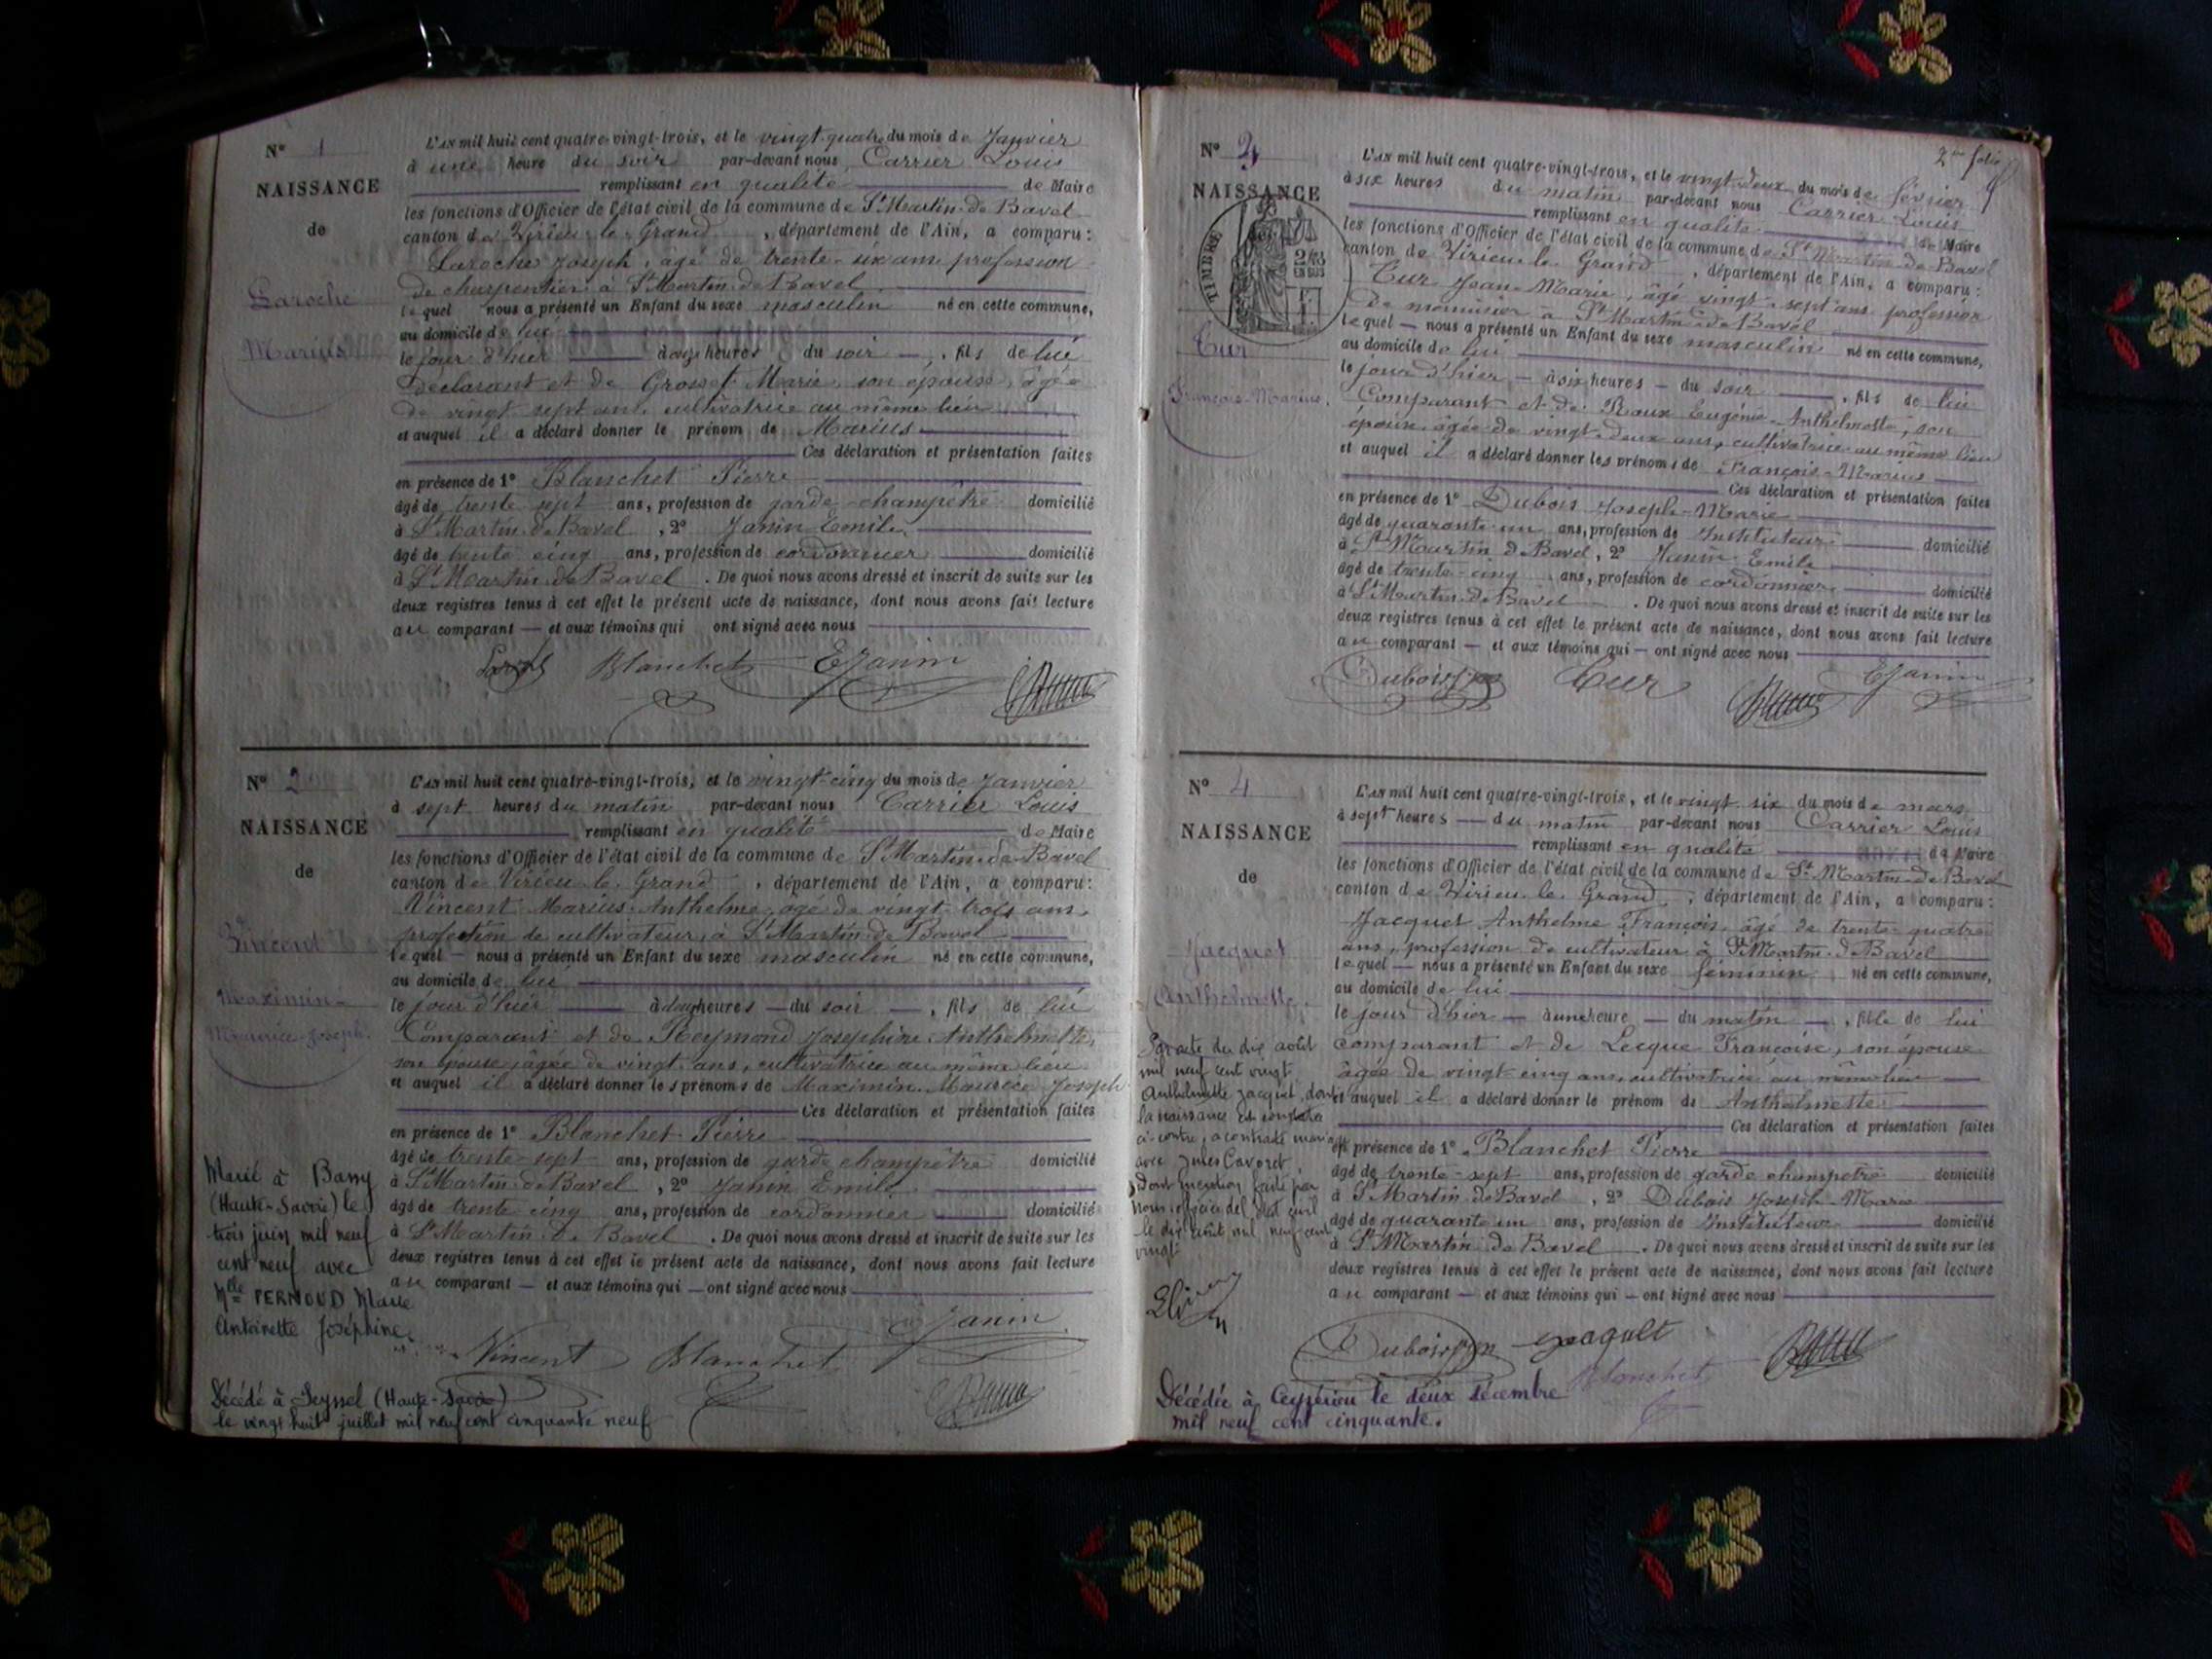 N° 1
NAISSANCE
de
Laroche
Marius
L'an mil huit cent quatre-vingt-trois, et le vingt-quatre du mois de Janvier
à une heure du soir par-devant nous Carrier Louis
remplissant en qualité de Maire
les fonctions d'Officier de l'état civil de la commune de St Martin de Bavel
canton de Virieu le Grand, département de l'Ain, a comparu:
Laroche Joseph, âgé de trente-six ans profession
de charpentier à St Martin de Bavel
lequel nous a présenté un Enfant du sexe masculin né en cette commune,
au domicile de lui
le jour d'hier à heures du soir, fils de lui
déclarant et de Grosset Marie son épouse, âgée
de vingt sept ans, cultivatrice au même lieu
et auquel il a déclaré donner le prénom de Marius
Ces déclaration et présentation faites
en présence de 1° Blanchet Pierre
âgé de trente sept ans, profession de garde-champêtre domicilié
à St Martin de Bavel, 2° Janin Emile
âgé de trente cinq ans, profession de cordonnier domicilié
à St Martin de Bavel. De quoi nous avons dressé et inscrit de suite sur les
deux registres tenus à cet effet le présent acte de naissance, dont nous avons fait lecture
au comparant — et aux témoins qui ont signé avec nous
Blanchet EJanin
N° 2
NAISSANCE
de
Vincent
Maximin-
Maurice-Joseph.
L'an mil huit cent quatre-vingt-trois, et le vingt-cinq du mois de Janvier
à sept heures du matin par-devant nous Carrier Louis
remplissant en qualité de Maire
les fonctions d'Officier de l'état civil de la commune de St Martin de Bavel
canton de Virieu le Grand, département de l'Ain, a comparu:
Vincent Marius Anthelme, âgé de vingt trois ans,
profession de cultivateur, à St Martin de Bavel
lequel — nous a présenté un Enfant du sexe masculin né en cette commune,
au domicile de lui
le jour d'hier à heures — du soir —, fils de lui
Comparant et de Reymond Joséphine Anthelmette,
son épouse, âgée de vingt ans, cultivatrice au même lieu
et auquel il a déclaré donner les prénoms de Maximin Maurice Joseph
Ces déclaration et présentation faites
en présence de 1° Blanchet Pierre
âgé de trente-sept ans, profession de garde champêtre domicilié
à St Martin de Bavel, 2° Janin Emile
âgé de trente cinq ans, profession de cordonnier domicilié
à St Martin de Bavel. De quoi nous avons dressé et inscrit de suite sur les
deux registres tenus à cet effet le présent acte de naissance, dont nous avons fait lecture
au comparant — et aux témoins qui — ont signé avec nous
Marié à Bassy
(Haute-Savoie) le
trois juin mil neuf
cent neuf avec
Mlle PERNOUD Marie
Antoinette Joséphine.
Janin
Vincent Blanchet
Décédé à Seyssel (Haute-Savoie)
le vingt huit juillet mil neuf cent cinquante neuf
2me folio
N° 3
NAISSANCE
TIMBRE
2/10
EN SUS
Cur
François-Marius.
L'an mil huit cent quatre-vingt-trois, et le vingt-deux du mois de février
à six heures du matin par-devant nous Carrier Louis
remplissant en qualité de Maire
les fonctions d'Officier de l'état civil de la commune de St Martin de Bavel
canton de Virieu le Grand, département de l'Ain, a comparu:
Cur Jean-Marie, âgé vingt-sept ans profession
de menuisier à St Martin de Bavel
lequel — nous a présenté un Enfant du sexe masculin né en cette commune,
au domicile de lui
le jour d'hier, — à six heures — du soir, fils de lui
Comparant et de Roux Eugénie-Anthelmette, son
épouse âgée de vingt-deux ans, cultivatrice au même lieu
et auquel il a déclaré donner les prénoms de François-Marius
Ces déclaration et présentation faites
en présence de 1° Dubois Joseph-Marie
âgé de quarante un ans, profession de Instituteur domicilié
à St Martin de Bavel, 2° Janin Emile
âgé de trente-cinq ans, profession de cordonnier domicilié
à St Martin de Bavel. De quoi nous avons dressé et inscrit de suite sur les
deux registres tenus à cet effet le présent acte de naissance, dont nous avons fait lecture
au comparant — et aux témoins qui — ont signé avec nous
Dubois Cur EJanin
N° 4
NAISSANCE
de
Jacquet
Anthelmette.
L'an mil huit cent quatre-vingt-trois, et le vingt six du mois de mars
à sept heures — du matin par-devant nous Carrier Louis
remplissant en qualité de Maire
les fonctions d'Officier de l'état civil de la commune de St Martin de Bavel
canton de Virieu le Grand, département de l'Ain, a comparu:
Jacquet Anthelme François, âgé de trente-quatre
ans, profession de cultivateur à St Martin de Bavel
lequel — nous a présenté un Enfant du sexe féminin né en cette commune,
au domicile de lui
le jour d'hier — à une heure — du matin —, fille de lui
comparant et de Lecque Françoise, son épouse
âgée de vingt cinq ans, cultivatrice au même lieu
et auquel il a déclaré donner le prénom de Anthelmette
Ces déclaration et présentation faites
en présence de 1° Blanchet Pierre
âgé de trente-sept ans, profession de garde champêtre domicilié
à St Martin de Bavel, 2° Dubois Joseph-Marie
âgé de quarante un ans, profession de Instituteur domicilié
à St Martin de Bavel. De quoi nous avons dressé et inscrit de suite sur les
deux registres tenus à cet effet le présent acte de naissance, dont nous avons fait lecture
au comparant — et aux témoins qui — ont signé avec nous
Par acte du dix août
mil neuf cent vingt
Anthelmette Jacquet, dont
la naissance est constatée
ci-contre, a contracté mariage
avec Jules Cavoret
Dont mention faite par
nous officier de l'état civil
le dix août mil neuf cent
vingt
Dubois
Blanchet
Décédée à Ceyzérieu le deux décembre
mil neuf cent cinquante.